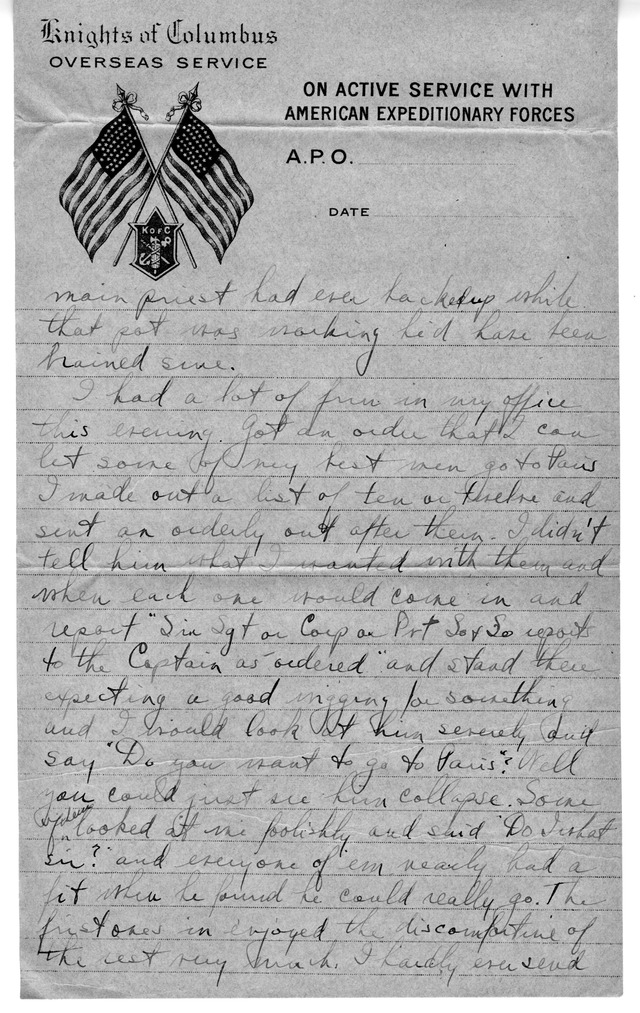 Knights of Columbus
OVERSEAS SERVICE
ON ACTIVE SERVICE WITH
AMERICAN EXPEDITIONARY FORCES
A.P.O.
DATE
K of C
main priest had ever backed up while
that pot was working he'd have been
brained sure.
I had a lot of fun in my office
this evening. Got an order that I can
let some of my best men go to Paris
I made out a list of ten or twelve and
sent an orderly out after them. I didn't
tell him what I wanted with them and
when each one would come in and
report "Sir Sgt or Corp or Pvt So & So reports
to the Captain as ordered" and stand there
expecting a good wigging for something
and I would look at him severely and
say "Do you want to go to Paris"? Well
you could just see him collapse. Some
looked at me foolishly and said "Do I what
sir?" and everyone of 'em nearly had a
fit when he found he could really go. The
first ones in enjoyed the discomfiture of
the rest very much. I hardly ever send